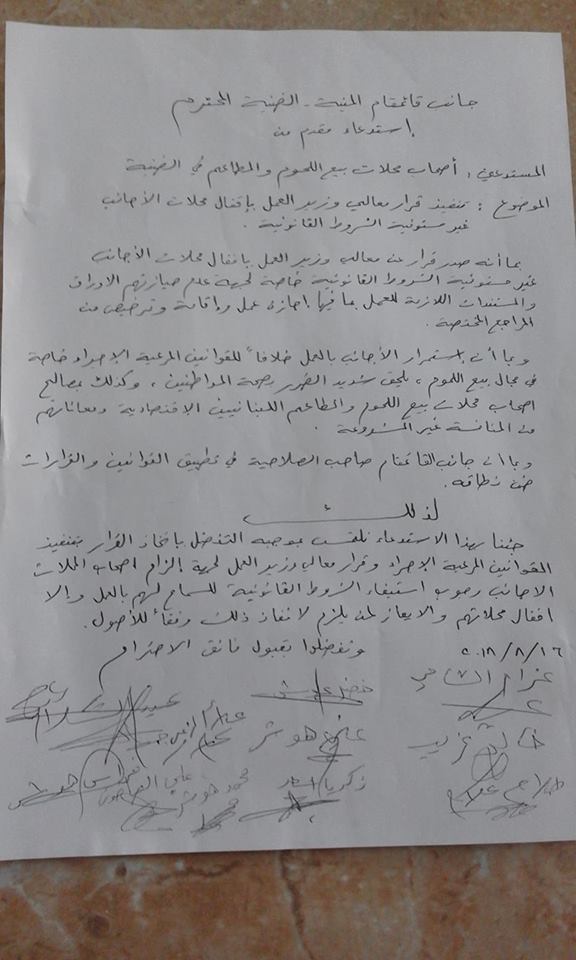 جانب قائمقام المنية - الضنية المحترم
إستدعاء مقدم من
المستدعي : أصحاب محلات بيع اللحوم والمطاعم في الضنية
الموضوع : تنفيذ قرار معالي وزير العمل بإقفال محلات الأجانب
غير مستوفية الشروط القانونية .
بما أنه صدر قرار عن معالي وزير العمل بإقفال محلات الأجانب
غير مستوفية الشروط القانونية خاصة لجهة عدم حيازتهم الاوراق
والمستندات اللازمة للعمل بما فيها إجازة عمل وإقامة وترخيص من
المراجع المختصة .
وبما أن إستمرار الأجانب بالعمل خلافاً للقوانين المرعية الإجراء خاصة
في مجال بيع اللحوم ، يلحق شديد الضرر بصحة المواطنين ، وكذلك بمصالح
اصحاب محلات بيع اللحوم والمطاعم اللبنانيين الإقتصادية ومعاناتهم
من المنافسة غير المشروعة .
وبما ان جانب القائمقام صاحب الصلاحية في تطبيق القوانين والقرارات
ضمن نطاقه .
لذلك
جئنا بهذا الاستدعاء نلتمس بموجبه التفضل بإتخاذ القرار بتنفيذ
القوانين المرعية الإجراء وقرار معالي وزير العمل لجهة إلزام اصحاب المحلات
الاجانب بوجوب استيفاء الشروط القانونية للسماح لهم بالعمل وإلا
اقفال محلاتهم والايعاز لمن يلزم لانفاذ ذلك وفقاً للأصول .
وتفضلوا بقبول فائق الاحترام
٢٠١٨/٨/١٦
عزام الشامي
خضر
خالد
علي هوشر
زكريا
محمد هوشر
علي